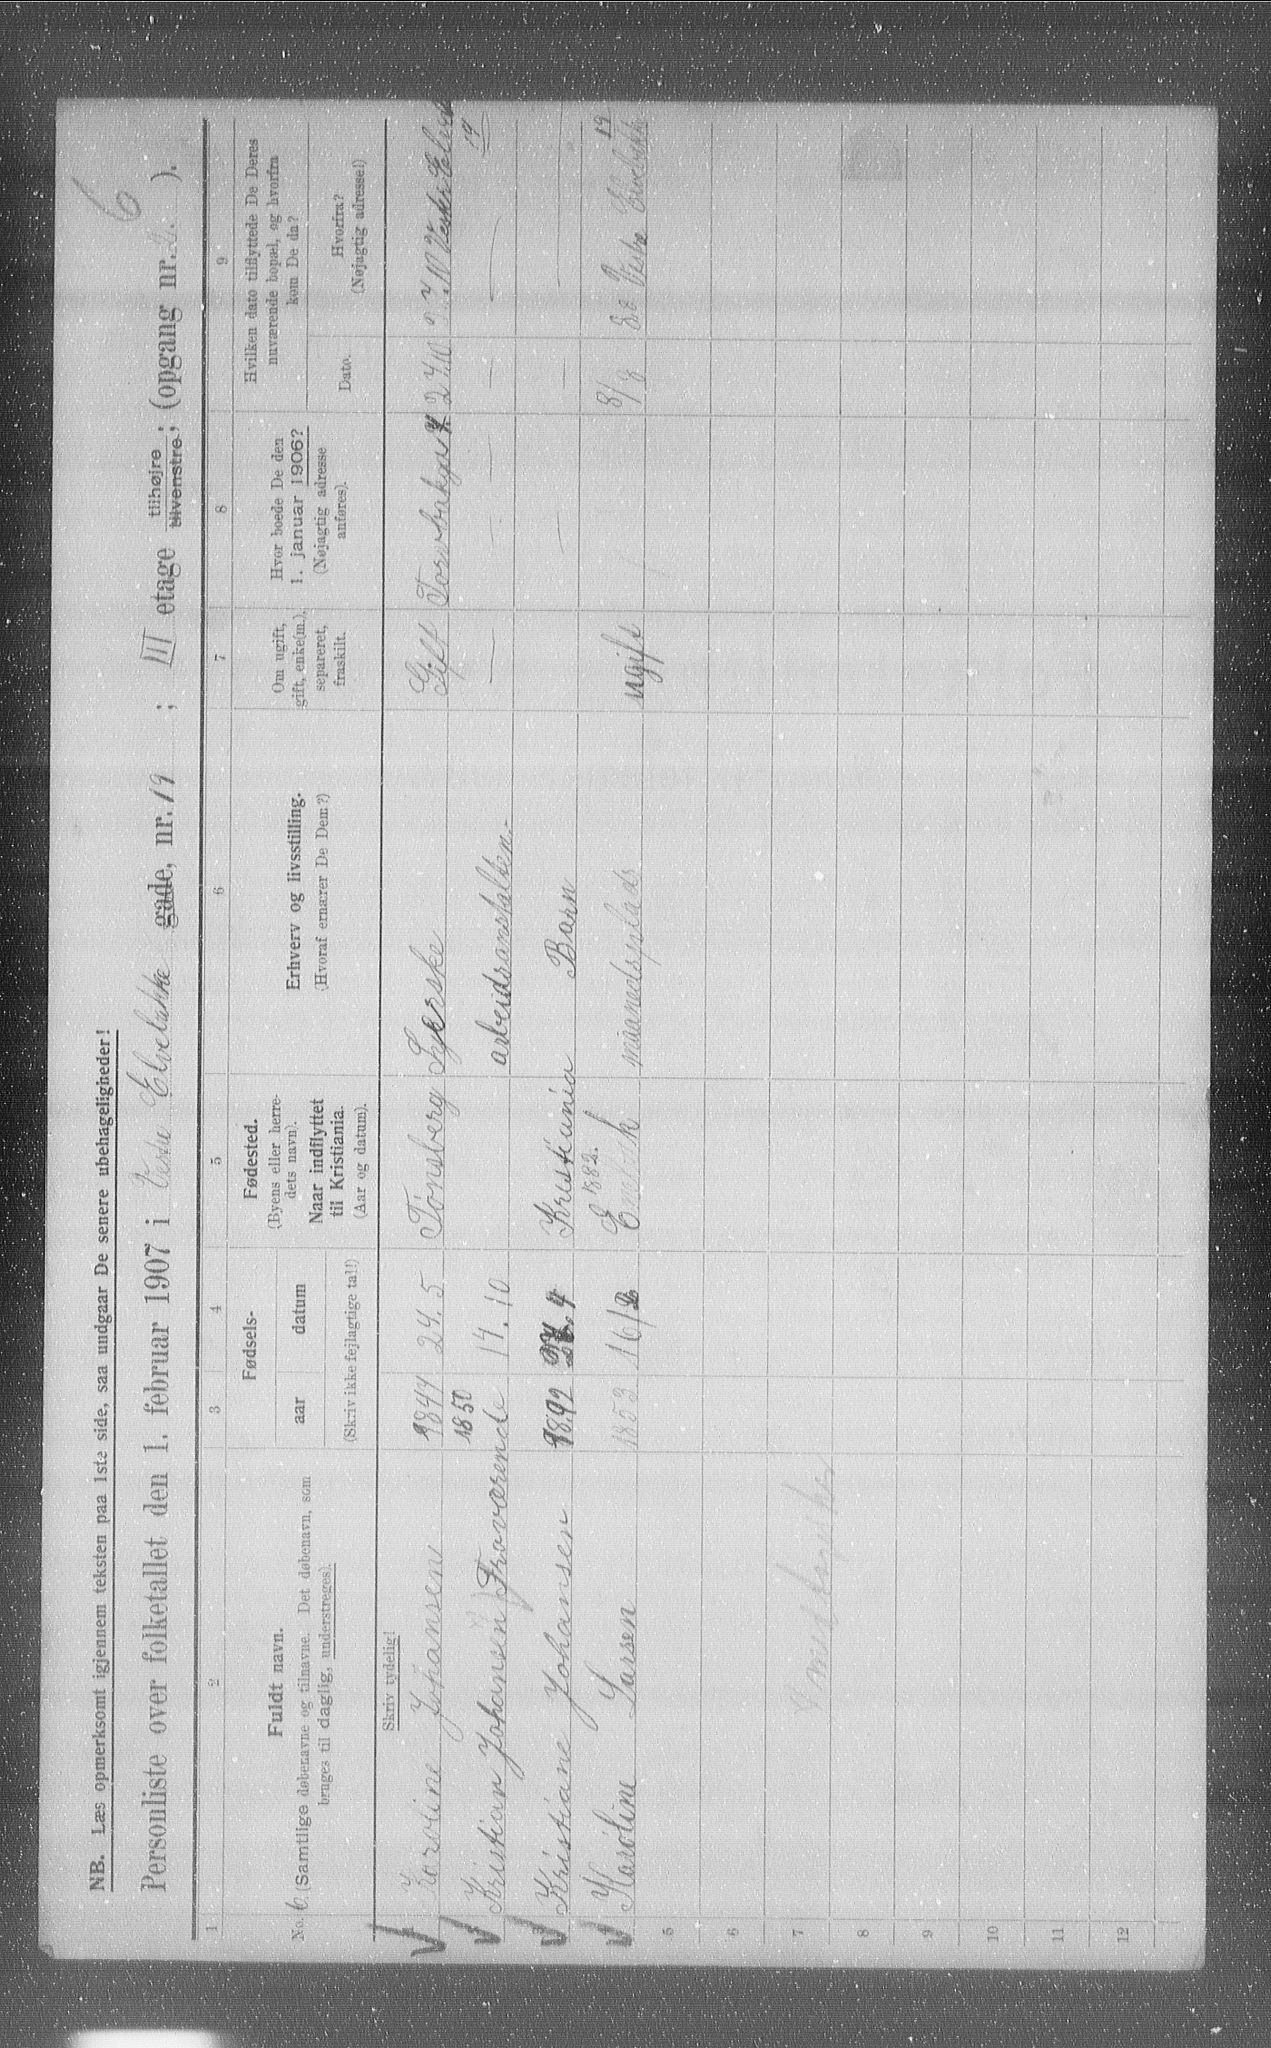 6
NB. Læs opmerksomt igjennem teksten paa 1ste side, saa undgaar De senere ubehageligheder!
Personliste over folketallet den 1. februar 1907 i Vestre Elvebakke gade, nr. 19 ; III etage tilhøjre tilvenstre; (opgang nr. ).
1 2 3 4 5 6 7 8 9
No. 6
Fuldt navn.
(Samtlige døbenavne og tilnavne. Det døbenavn, som
bruges til daglig, understreges).
Fødsels-
aar datum
(Skriv ikke fejlagtige tal!)
Fødested.
(Byens eller herre-
dets navn).
Naar indflyttet
til Kristiania.
(Aar og datum).
Erhverv og livsstilling.
(Hvoraf ernærer De Dem?)
Om ugift,
gift, enke(m.),
separeret,
fraskilt.
Hvor boede De den
1. januar 1906?
(Nøjagtig adresse
anføres).
Hvilken dato tilflyttede De Deres
nuværende bopæl, og hvorfra
kom De da?
Dato.
Hvorfra?
(Nøjagtig adresse!)
Skriv tydelig!
Karoline Johansen 1844 24. 5 Tönsberg Syerske Gift Torvbakgt
19
Kristian Johansen Fraværende 1850 14. 10 arbeidsanstalten.- — — — —
Kristiane Johansen 1892 4 Kristiania Barn — — —
Karoline Larsen 1853 16/2 1882. maanedsplads ugift 8/8 Vestre Elvebakke 19
5
6
7
8
9
10
11
12